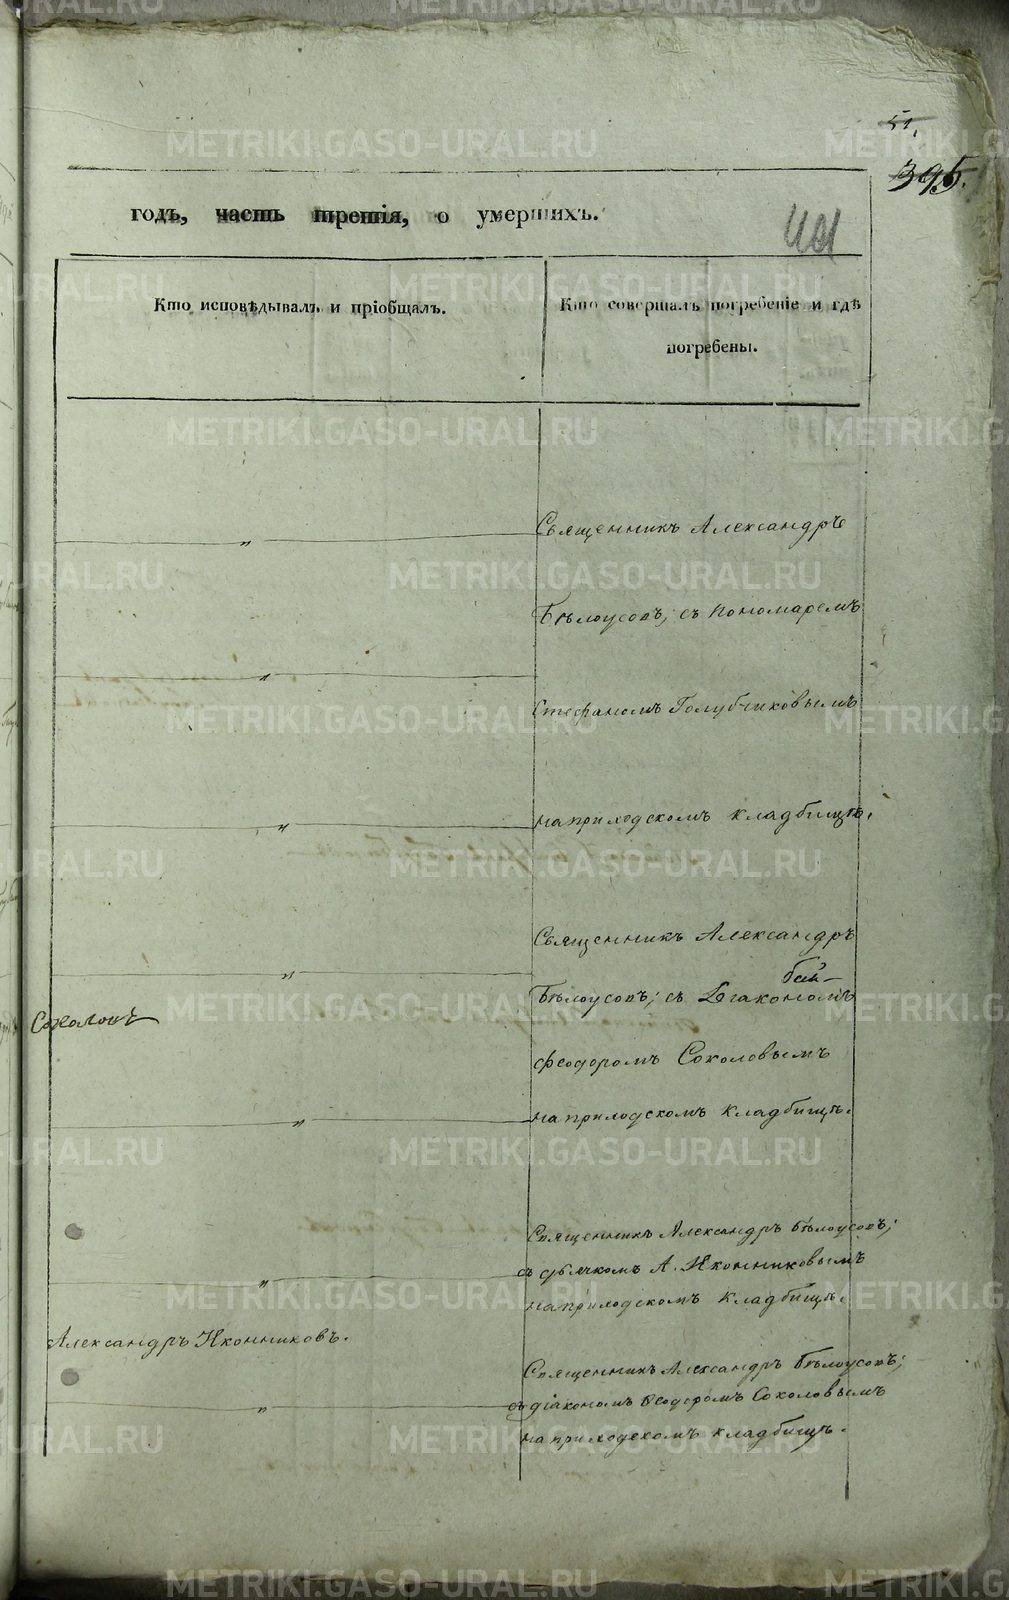 51,
395.
401
годъ, часть третія, о умершихъ.
Кто исповѣдывалъ и пріобщалъ.
Кто совершалъ погребеніе и гдѣ
погребены.
Священникъ Александръ
Бѣлоусовъ; съ пономаремъ
Стефаномъ Голубчиковымъ
на приходскомъ кладбищѣ.
Священникъ Александръ
Бѣлоусовъ; съ діакономъ
Феодоромъ Соколовымъ
на приходскомъ кладбищѣ.
Соколовъ
Священникъ Александръ Бѣлоусовъ;
съ дьячкомъ А. Иконниковымъ
на приходскомъ кладбищѣ.
Александръ Иконниковъ.
Священникъ Александръ Бѣлоусовъ;
съ діакономъ Феодоромъ Соколовымъ
на приходскомъ кладбищѣ.
METRIKI.GASO-URAL.RU